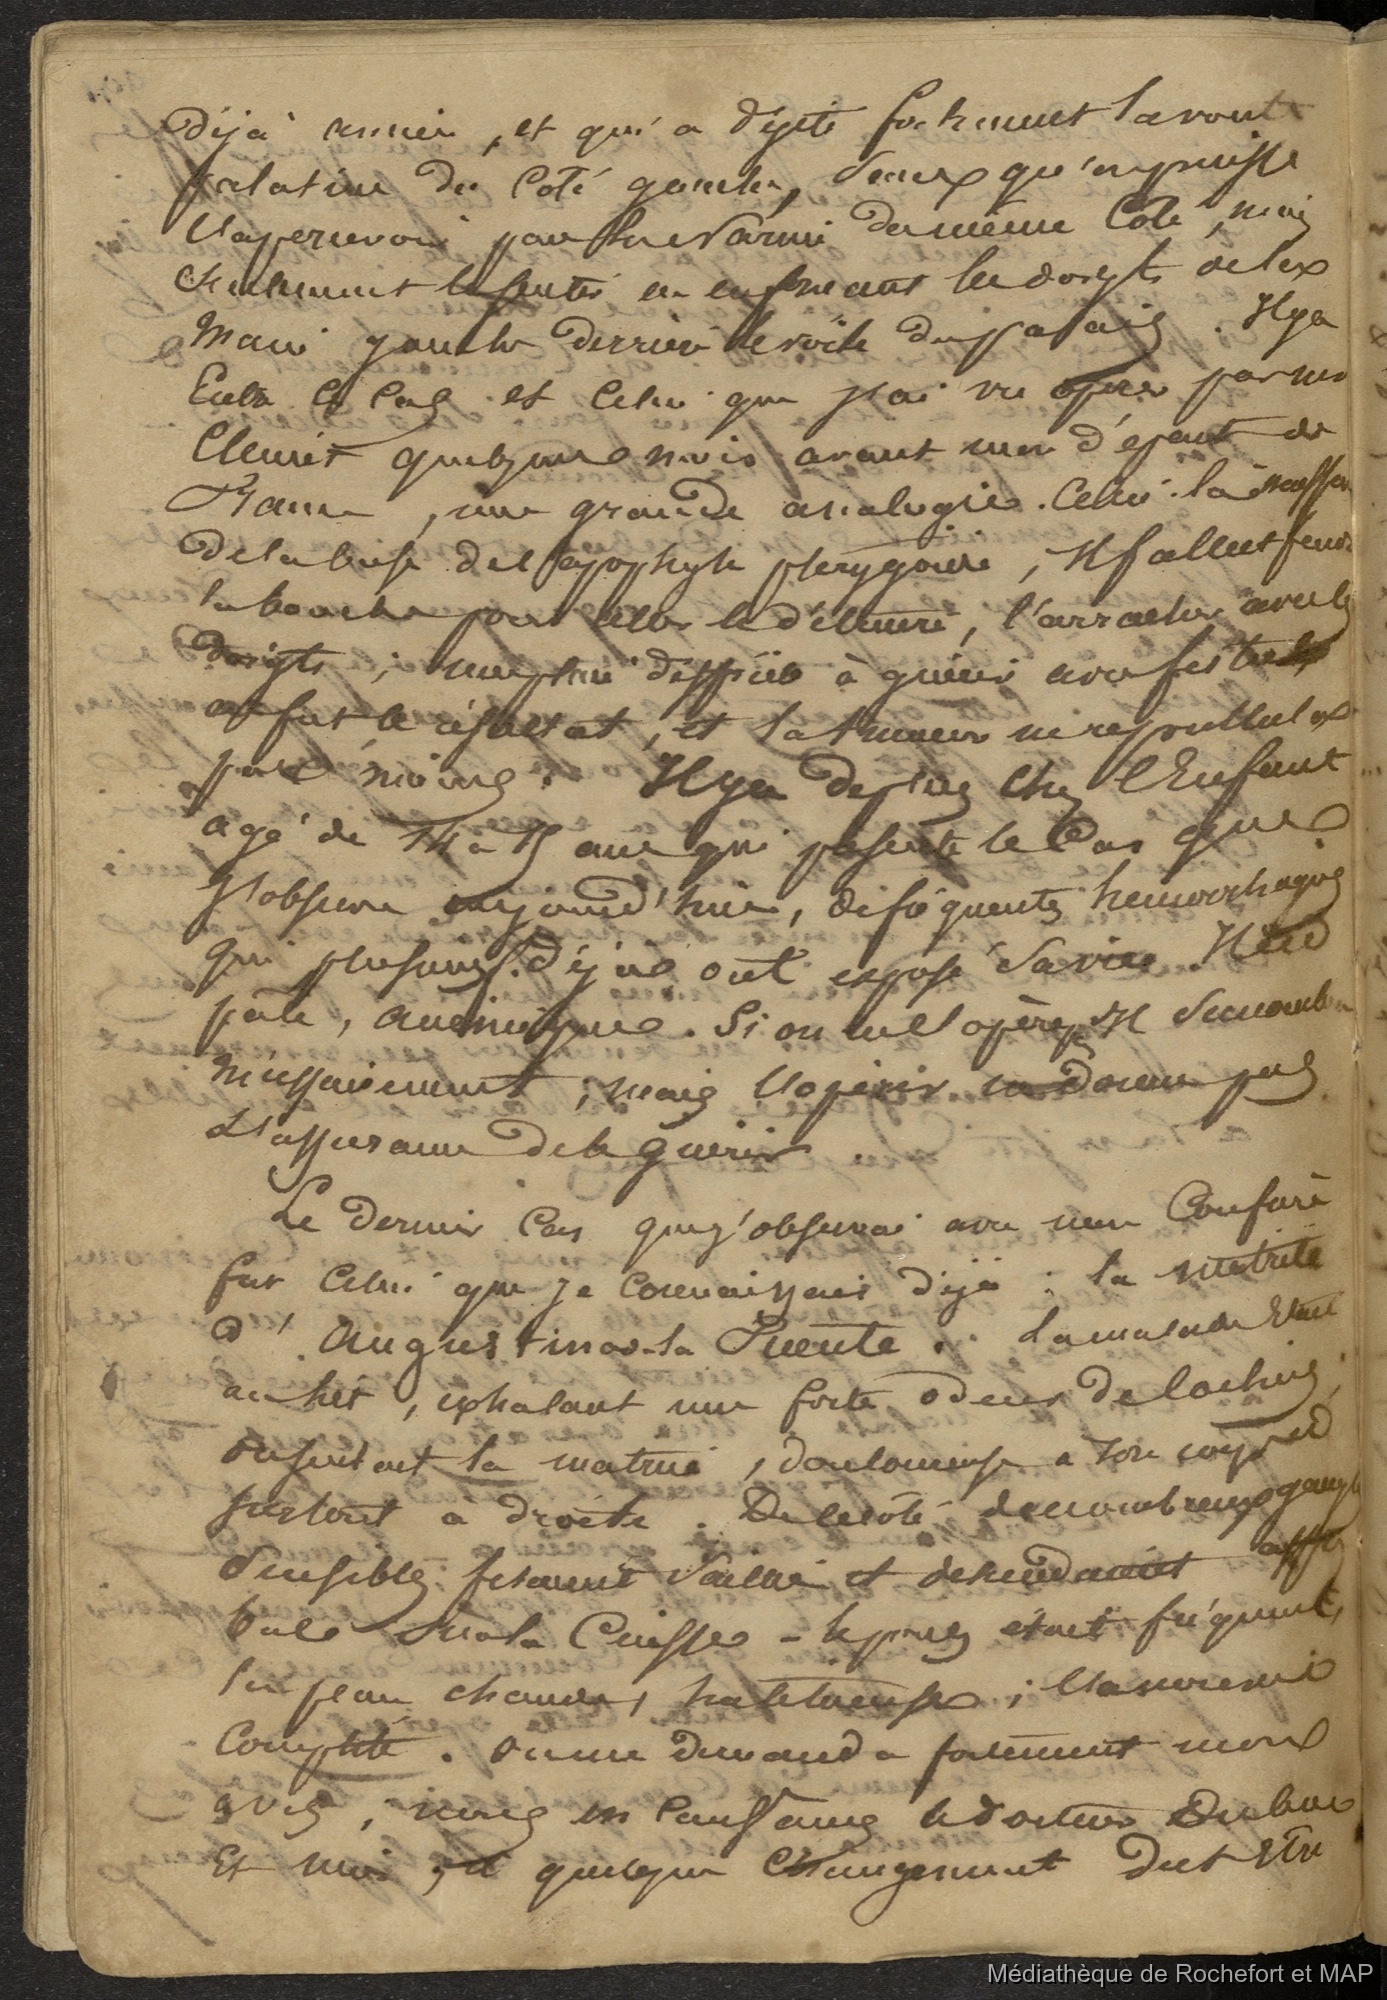 Déjà                , et qui a dejeté fortement la voute
palatine du Coté gauche, sans qu'on puisse
l'apercevoir par la Narine du même Coté, mais
seulement le sentir en enfonçant les doigts de la
Main gauche derrière le voile du palais. Il y a
Entre ce cas et Celui que j'ai vu opérer par mr
Clémot quelques mois avant mon départ de
France, une grande analogie. Celui-là naissait
de la base de l'apophyse pterygoïde, Il fallut fendre
la bouche pour                , l'arracher avec les
doigts ; une plaie difficile à guérir avec fistule
en fut le résultat, et la tumeur ne repullula
pas moins. Il y a de plus chez l'Enfant
agé de 14 à 15 ans qui présente le Cas que
J'observe aujourd'hui, de fréquentes hemorrhagies
qui plusieurs fois déjà ont exposé sa vie. Il est
pâle, anémique. Si on ne l'opère, Il succombera
nécessairement ; mais l'opérer ne donne pas
L'assurance de le guérir.
Le dernier Cas que j'observai avec mon Confrère
fut Celui que je connaissais déjà : la métrite
d'Augustina la Puente. La malade était
au lit, exhalant une forte odeur de lochies,
        la matrice, douloureuse
surtout à droite. De ce côté de nombreux gang.
sensibles fesaient saillie et descendaient
        sur la Cuisse - le pouls était fréquent,
la peau chaude, halitueuse ; l'anorexie
Complète. On me demanda forcément mon
avis ; nous en causames le docteur Dubuc
Et moi, et quelque Changement dut Etre